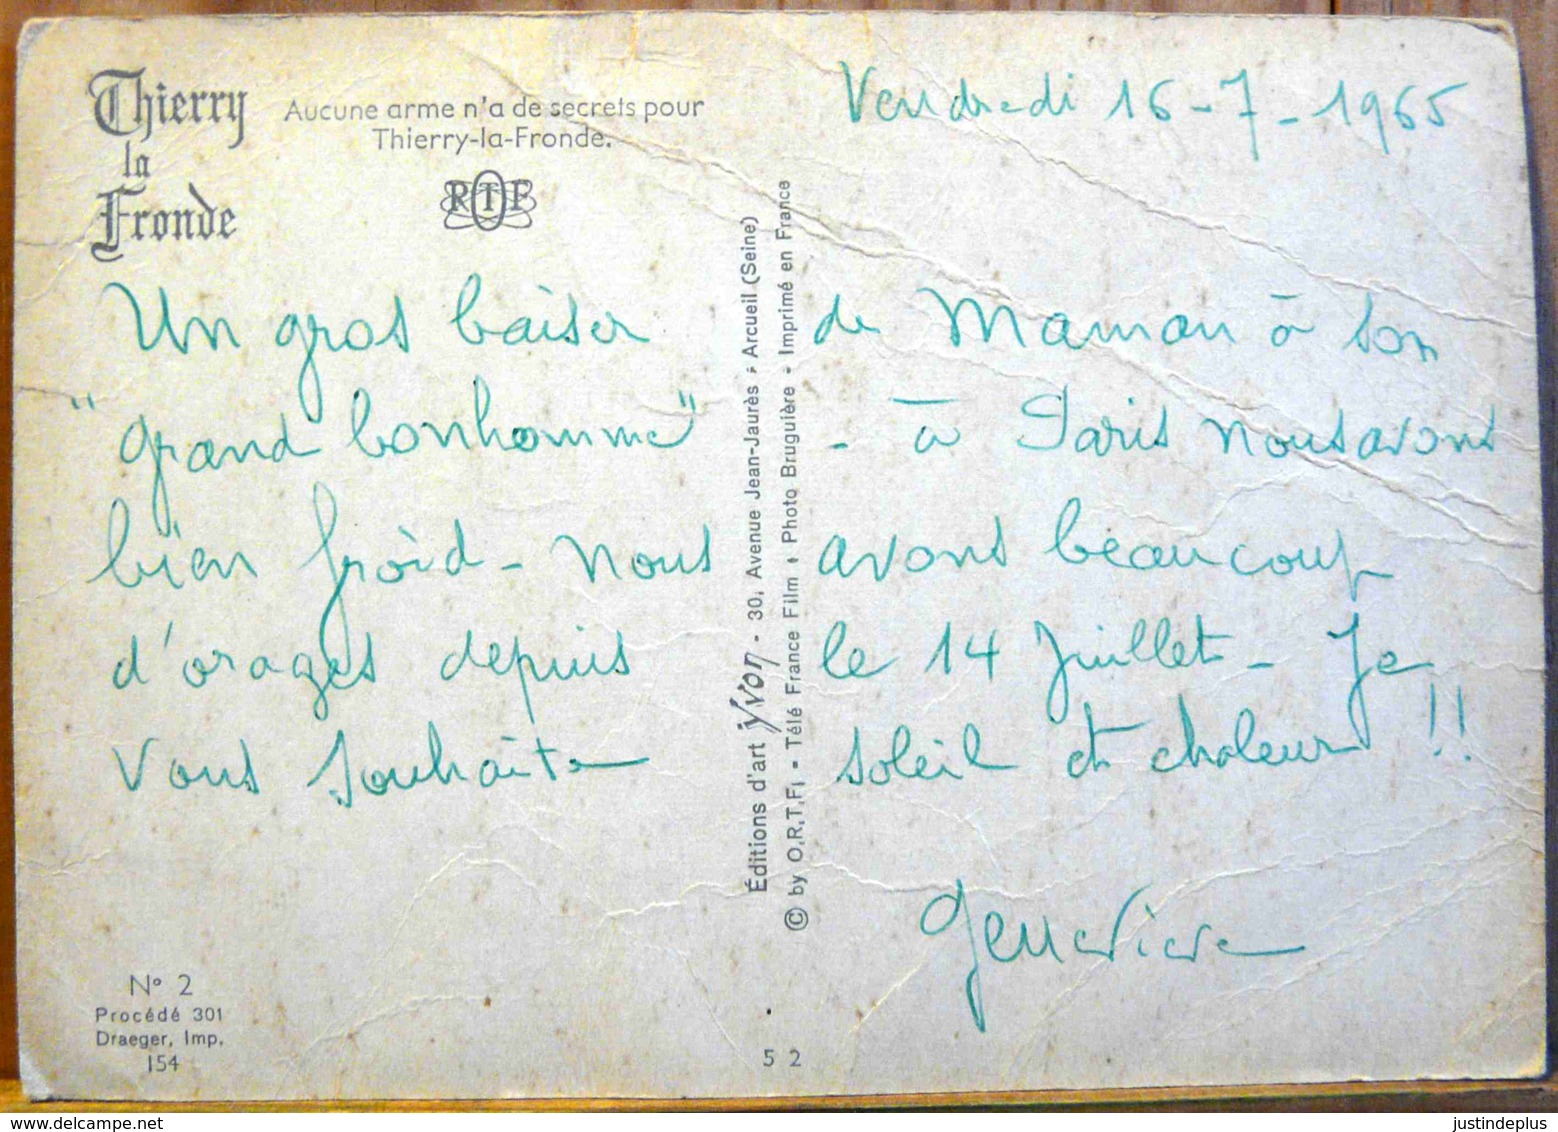 Thierry
la
Fronde
Aucune arme n'a de secrets pour
Thierry-la-Fronde.
ORTF
Vendredi 16-7-1965
Un gros baiser de Maman à son
"grand bonhomme" - à Paris nous avons
bien froid - nous avons beaucoup
d'orages depuis le 14 Juillet - Je
vous souhaite soleil et chaleur !!
Geneviève
Éditions d'art Yvon - 30, Avenue Jean-Jaurès - Arcueil (Seine)
© by O.R.T.F. - Télé France Film - Photo Bruguière - Imprimé en France
N° 2
Procédé 301
Draeger, Imp.
154
52
delcampe.net
justindeplus